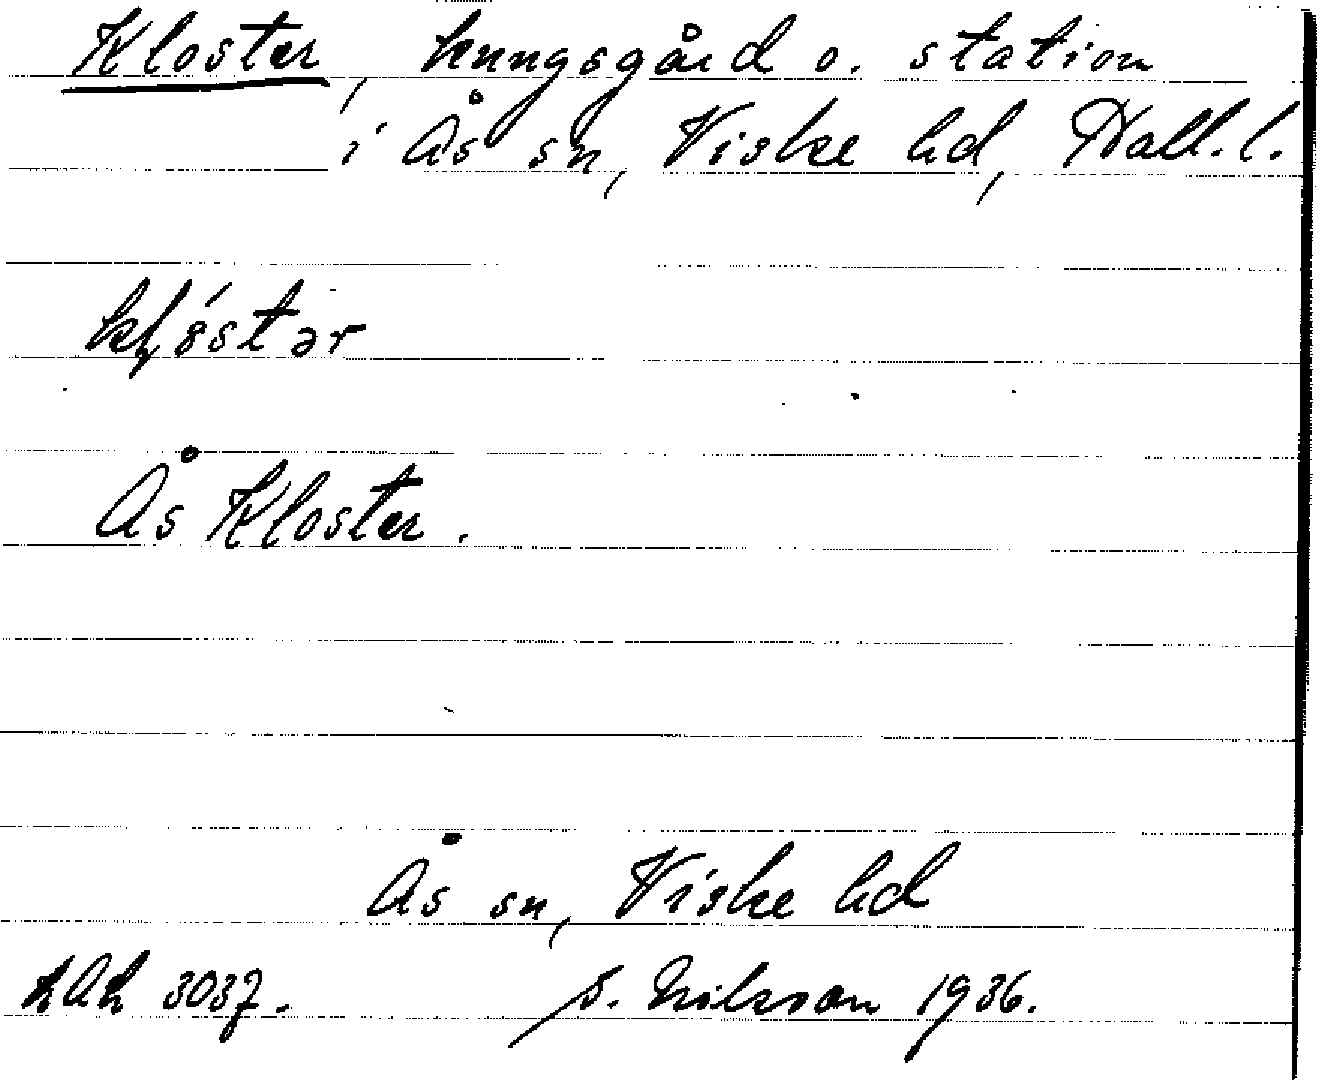 Kloster, kungsgård o. station
i Ås sn, Viske hd, Hall. l.
Ås Kloster.
Ås sn, Viske hd
3037. S. Nilsson 1936.